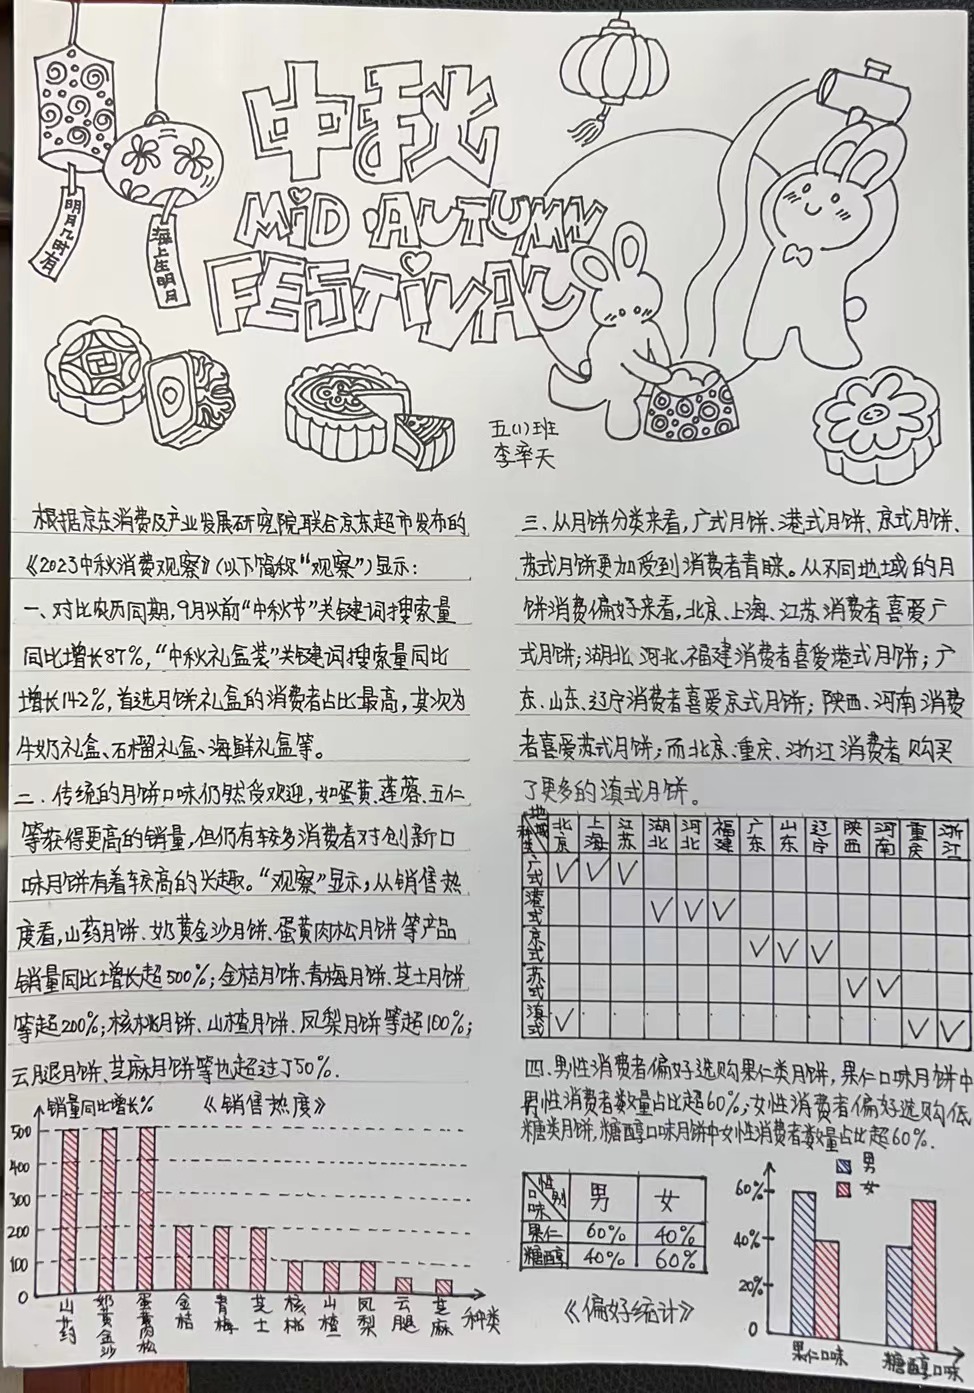 中秋
MID AUTUMN
FESTIVAL
明月几时有
海上生明月
五(1)班
李率天
根据京东消费及产业发展研究院联合京东超市发布的
《2023中秋消费观察》(以下简称“观察”)显示:
一、对比农历同期,9月以前“中秋节”关键词搜索量
同比增长87%,“中秋礼盒装”关键词搜索量同比
增长142%,首选月饼礼盒的消费者占比最高,其次为
牛奶礼盒、石榴礼盒、海鲜礼盒等。
二、传统的月饼口味仍然受欢迎,如蛋黄、莲蓉、五仁
等获得更高的销量,但仍有较多消费者对创新口
味月饼有着较高的兴趣。“观察”显示,从销售热
度看,山药月饼、奶黄金沙月饼、蛋黄肉松月饼等产品
销量同比增长超500%;金桔月饼、青梅月饼、芝士月饼
等超200%;核桃月饼、山楂月饼、凤梨月饼等超100%;
云腿月饼、芝麻月饼等也超过了50%.
销量同比增长%
《销售热度》
500
400
300
200
100
0
山药
奶黄金沙
蛋黄肉松
金桔
青梅
芝士
核桃
山楂
凤梨
云腿
芝麻
种类
三、从月饼分类来看,广式月饼、港式月饼、京式月饼、
苏式月饼更加受到消费者青睐。从不同地域的月
饼消费偏好来看,北京、上海、江苏消费者喜爱广
式月饼;湖北、河北、福建消费者喜爱港式月饼;广
东、山东、辽宁消费者喜爱京式月饼;陕西、河南消费
者喜爱苏式月饼;而北京、重庆、浙江消费者购买
了更多的滇式月饼。
地域 种类 北京 上海 江苏 湖北 河北 福建 广东 山东 辽宁 陕西 河南 重庆 浙江
广式 √ √ √
港式 √ √ √
京式 √ √ √
苏式 √ √
滇式 √ √ √
四、男性消费者偏好选购果仁类月饼,果仁口味月饼中
男性消费者数量占比超60%;女性消费者偏好选购低
糖类月饼,糖醇口味月饼中女性消费者数量占比超60%.
性别 口味 男 女
果仁 60% 40%
糖醇 40% 60%
《偏好统计》
男
女
60%
40%
20%
0
果仁口味
糖醇口味